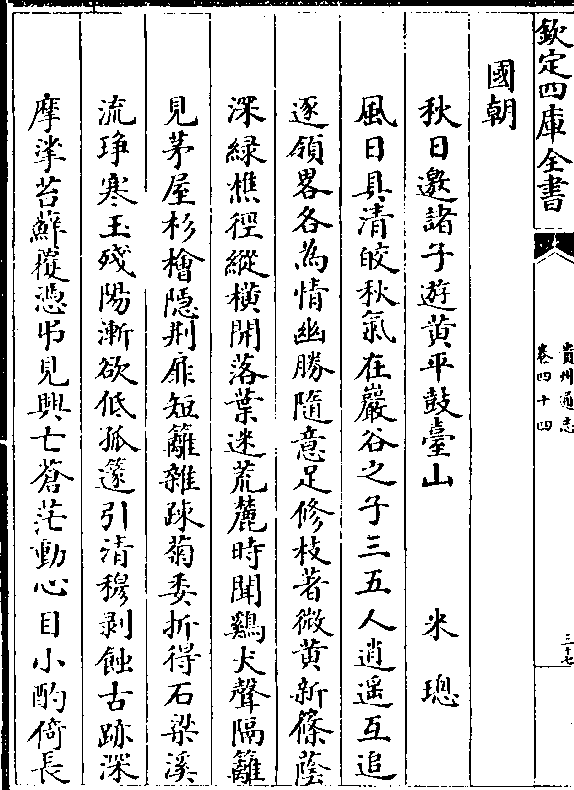 欽定四庫全書
貴州通志
卷四十四
三十七
國朝
秋日邀諸子遊黄平鼓臺山 米璁
風日具清皎秋氣在巖谷之子三五人逍遥互追
逐領畧各為情幽勝隨意足修枝著微黄新篠蔭
深緑樵徑縱横開落葉迷荒麓時聞鷄犬聲隔籬
見茅屋杉檜隠荆扉短籬雜疎菊委折得石梁溪
流琤寒玉殘陽漸欲低孤篴引清穆剥蝕古跡深
摩挲苔蘚覆憑弔見興亡蒼茫動心目小酌倚長